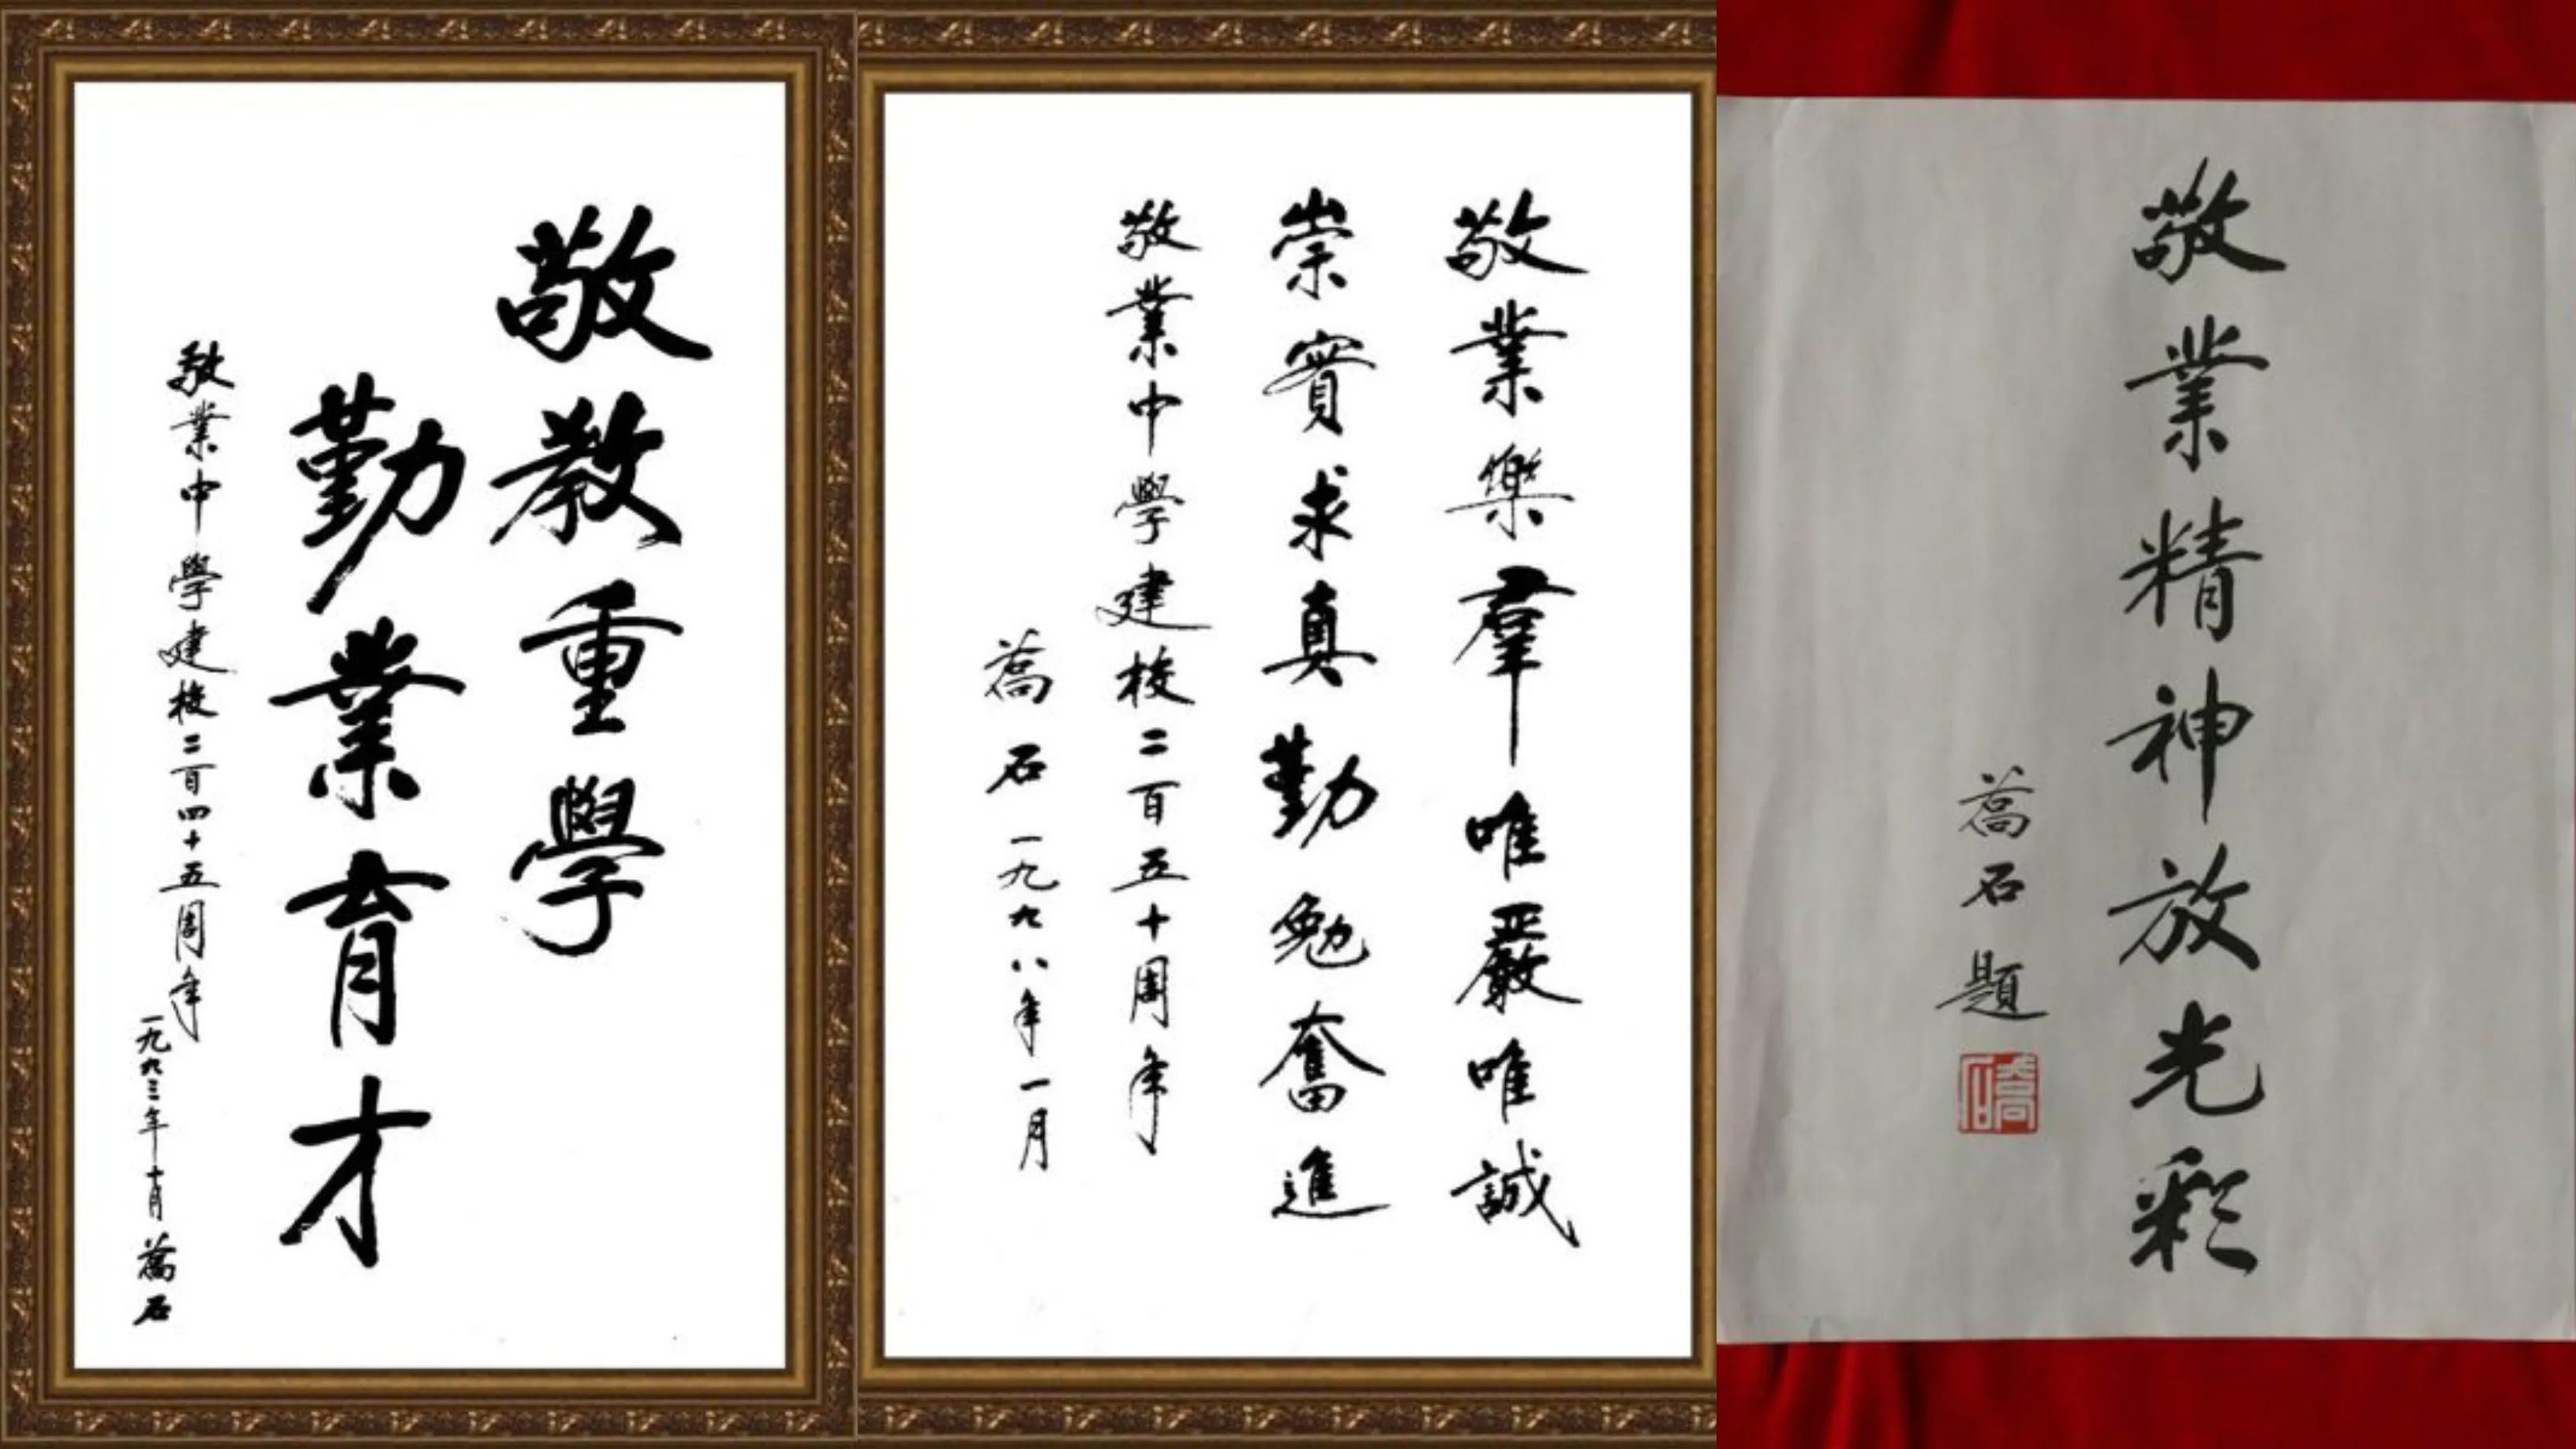 敬教重學
勤業育才
敬業中學建校二百四十五周年
一九九三年十月 喬石
敬業樂羣唯嚴唯誠
崇實求真勤勉奮進
敬業中學建校二百五十周年
喬石 一九九八年一月
敬業精神放光彩
喬石題
喬石